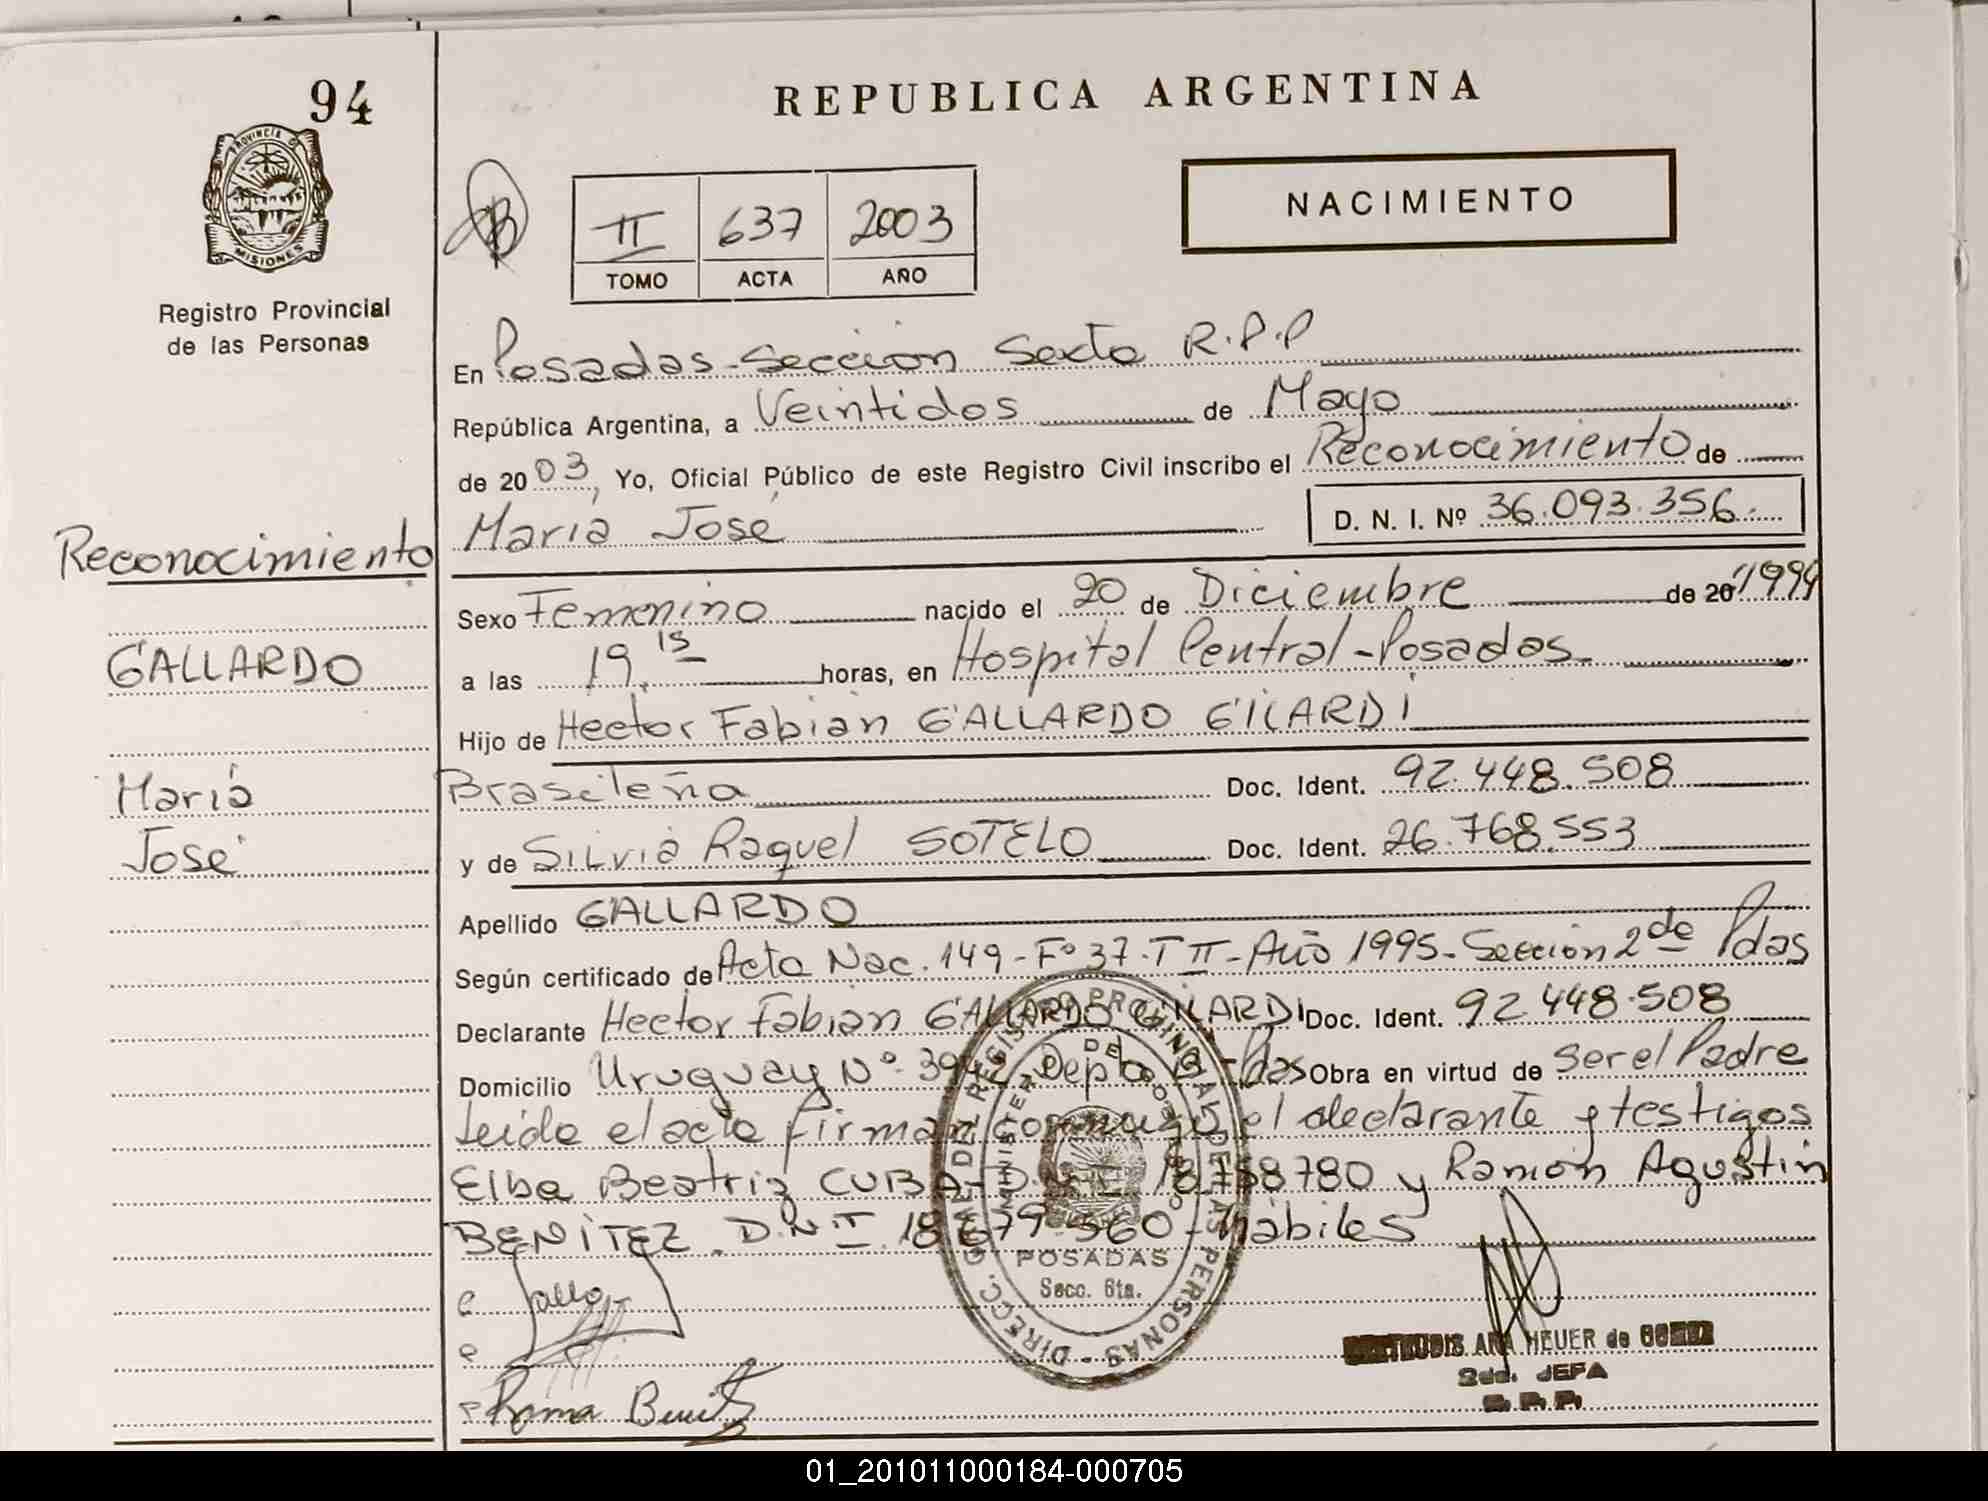 94
REPUBLICA ARGENTINA
PROVINCIA D
MISIONES
Registro Provincial
de las Personas
II 637 2003
TOMO ACTA AÑO
NACIMIENTO
En Posadas-Sección Sexta R.P.P
República Argentina, a Veintidos de Mayo
de 2003, Yo, Oficial Público de este Registro Civil inscribo el Reconocimiento de
María José D. N. I. Nº 36.093.356.
Reconocimiento
GALLARDO
María
José
Sexo Femenino nacido el 20 de Diciembre de 20 1994
a las 19.15 horas, en Hospital Central-Posadas
Hijo de Hector Fabián GALLARDO GILARDI
Brasileña Doc. Ident. 92.448.508
y de Silvia Raquel SOTELO Doc. Ident. 26.768.553
Apellido GALLARDO
Según certificado de Acta Nac. 149-Fº 37-T II-Año 1995-Sección 2da Pdas
Declarante Hector Fabián GALLARDO GILARDI Doc. Ident. 92 448.508
Domicilio Uruguay Nº 39 Depto Pdas Obra en virtud de ser el Padre
Leída el acta firman conmigo el declarante y testigos
Elba Beatriz CUBA D.N.I. 18 758780 y Ramón Agustín
BENÍTEZ. D.N.I. 18 679.560-Hábiles
DIRECC. GRAL. DEL REGISTRO PROVINCIAL DE LAS PERSONAS
MINISTERIO DE GOBIERNO
POSADAS
Secc. 6ta.
GERTRUDIS ANA HEUER de GOMEZ
2da. JEFA
R.P.P.
01_201011000184-000705